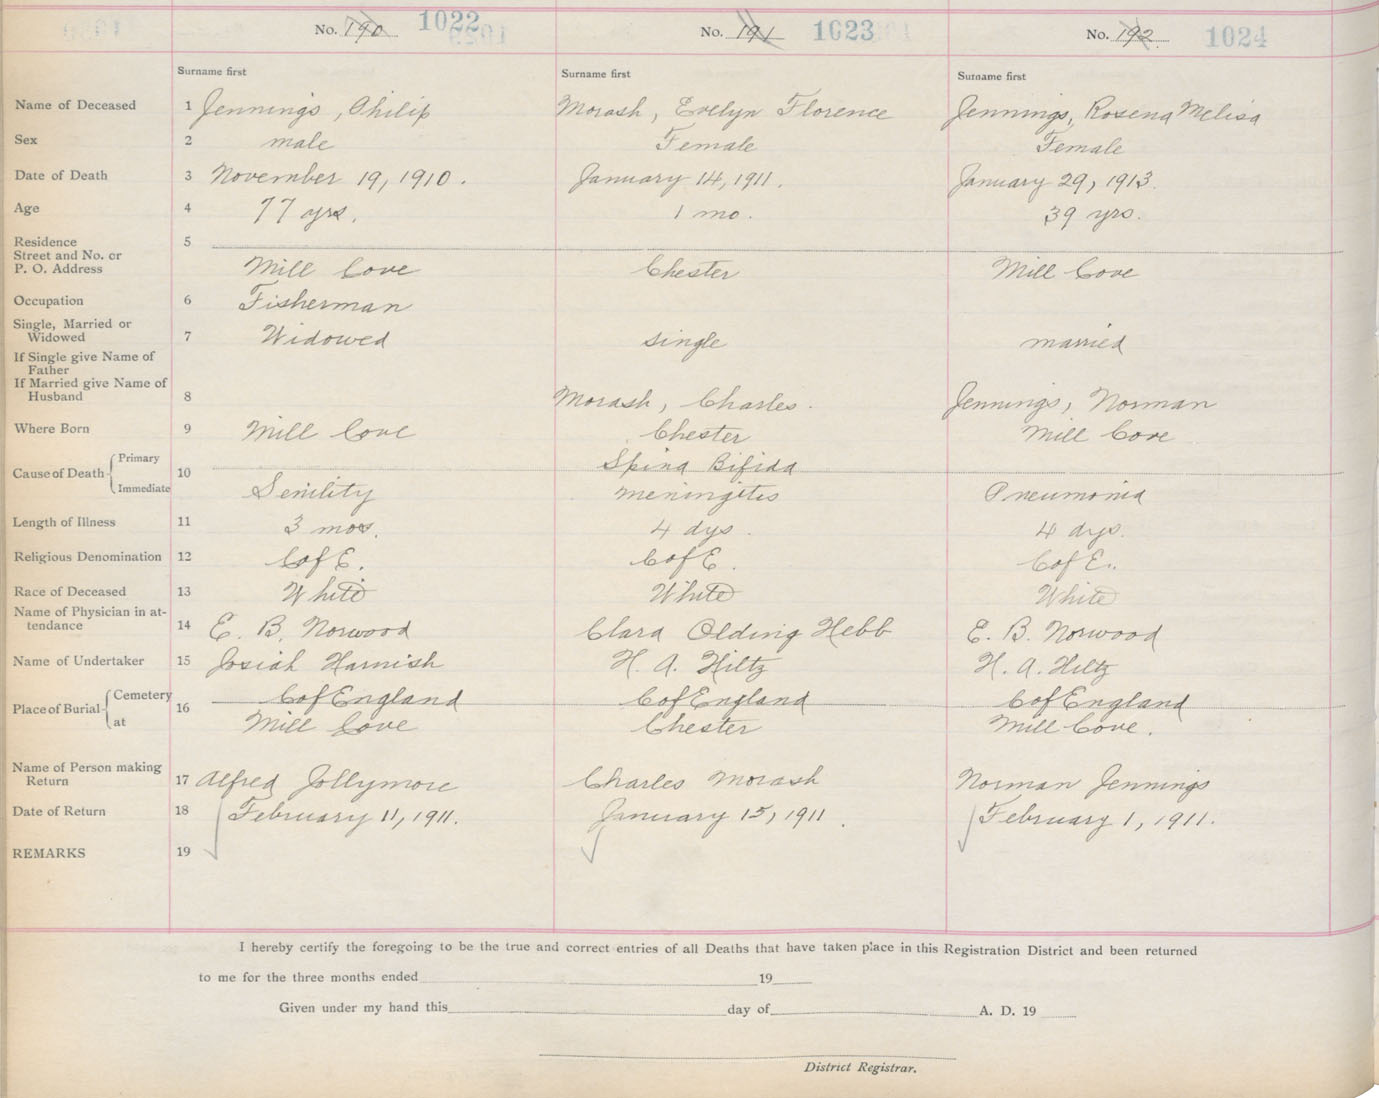 No. 190 1022 No. 191 1023 No. 192 1024
Surname first Surname first Surname first
Name of Deceased 1 Jennings, Philip Morash, Evelyn Florence Jennings, Rosena Melisa
Sex 2 male Female Female
Date of Death 3 November 19, 1910. January 14, 1911. January 29, 1913.
Age 4 77 yrs. 1 mo. 39 yrs.
Residence 5
Street and No. or
P. O. Address Mill Cove Chester Mill Cove
Occupation 6 Fisherman
Single, Married or
Widowed 7 Widowed single married
If Single give Name of
Father
If Married give Name of
Husband 8 Morash, Charles. Jennings, Norman
Where Born 9 Mill Cove Chester Mill Cove
Cause of Death Primary 10 Spina Bifida
Immediate Senility meningitis Pneumonia
Length of Illness 11 3 mos. 4 dys. 4 dys.
Religious Denomination 12 C of E. C of E. C of E.
Race of Deceased 13 White White White
Name of Physician in at-
tendance 14 E. B. Norwood Clara Olding Hebb E. B. Norwood
Name of Undertaker 15 Josiah Harnish H. A. Hiltz H. A. Hiltz
Place of Burial Cemetery 16 C of England C of England C of England
at Mill Cove Chester Mill Cove.
Name of Person making
Return 17 Alfred Jollymore Charles Morash Norman Jennings
Date of Return 18 February 11, 1911. January 15, 1911. February 1, 1911.
REMARKS 19
I hereby certify the foregoing to be the true and correct entries of all Deaths that have taken place in this Registration District and been returned
to me for the three months ended 19
Given under my hand this day of A. D. 19
District Registrar.